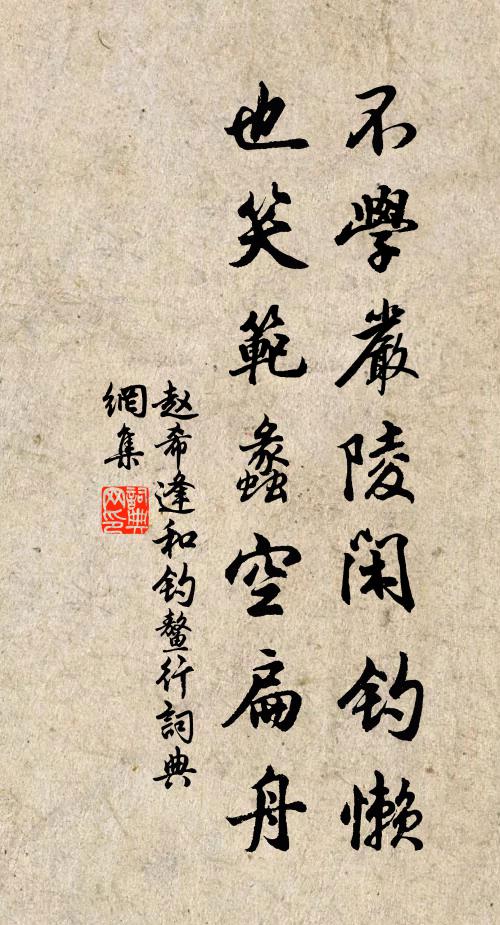 不學嚴陵閑钓懶
也笑範蠡空扁舟
赵希逢和钓鳌行詞典
網集
詞典
网印